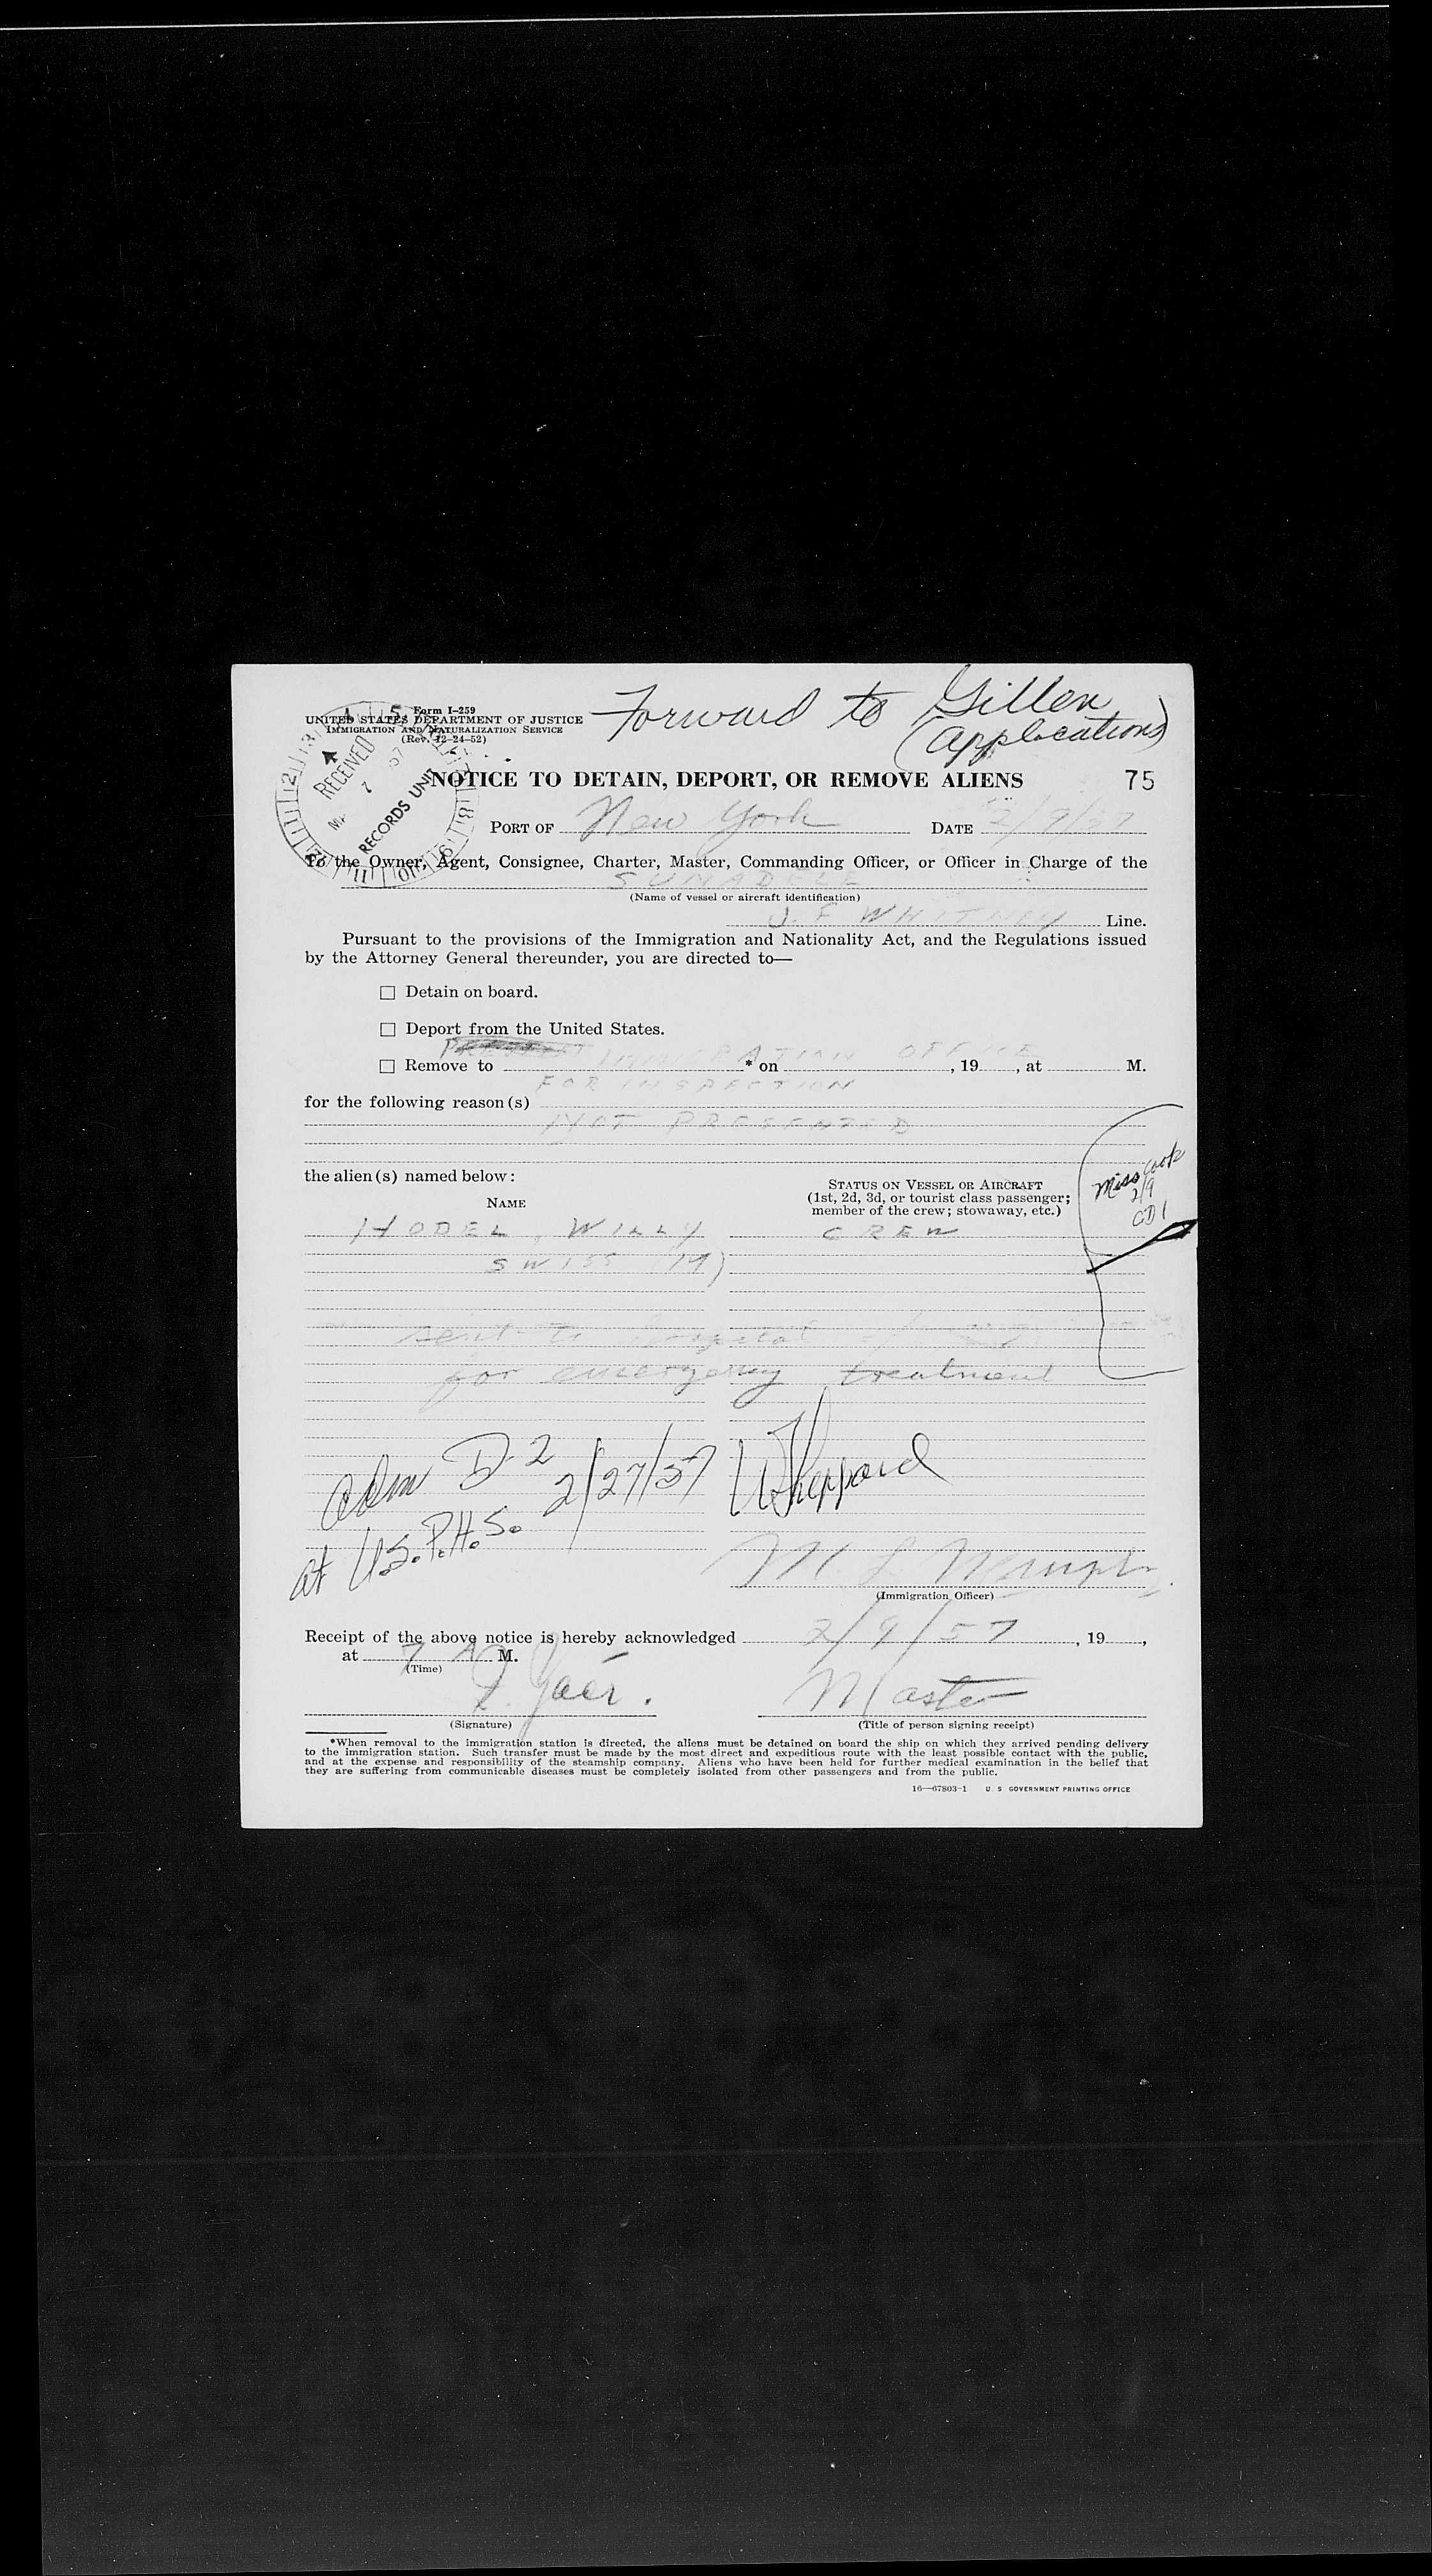 Form I-259
UNITED STATES DEPARTMENT OF JUSTICE
IMMIGRATION AND NATURALIZATION SERVICE
(Rev. 12-24-52)
Forward to Gillen
(applications)
RECEIVED
RECORDS UNIT
NOTICE TO DETAIN, DEPORT, OR REMOVE ALIENS 75
PORT OF New York DATE 2/9/57
To the Owner, Agent, Consignee, Charter, Master, Commanding Officer, or Officer in Charge of the
SUNADELE
(Name of vessel or aircraft identification)
J. F WHITNEY Line.
Pursuant to the provisions of the Immigration and Nationality Act, and the Regulations issued
by the Attorney General thereunder, you are directed to—
☐ Detain on board.
☐ Deport from the United States.
☐ Remove to IMMIGRATION OFFICE * on , 19 , at M.
FOR INSPECTION
for the following reason(s)
NOT PRESENTED
the alien(s) named below:
NAME
STATUS ON VESSEL OR AIRCRAFT
(1st, 2d, 3d, or tourist class passenger;
member of the crew; stowaway, etc.)
Miss Cook
2/9
CD1
HODEL, WILLY CREW
SWISS (19)
sent to hospital
for emergency treatment
Adm D-2 2/27/57 WSheppard
at U.S.P.H.S.
M L
(Immigration Officer)
Receipt of the above notice is hereby acknowledged 2/9/57, 19 ,
at 7 A M.
(Time)
Master
(Signature) (Title of person signing receipt)
*When removal to the immigration station is directed, the aliens must be detained on board the ship on which they arrived pending delivery
to the immigration station. Such transfer must be made by the most direct and expeditious route with the least possible contact with the public,
and at the expense and responsibility of the steamship company. Aliens who have been held for further medical examination in the belief that
they are suffering from communicable diseases must be completely isolated from other passengers and from the public.
16—67803-1 U. S. GOVERNMENT PRINTING OFFICE